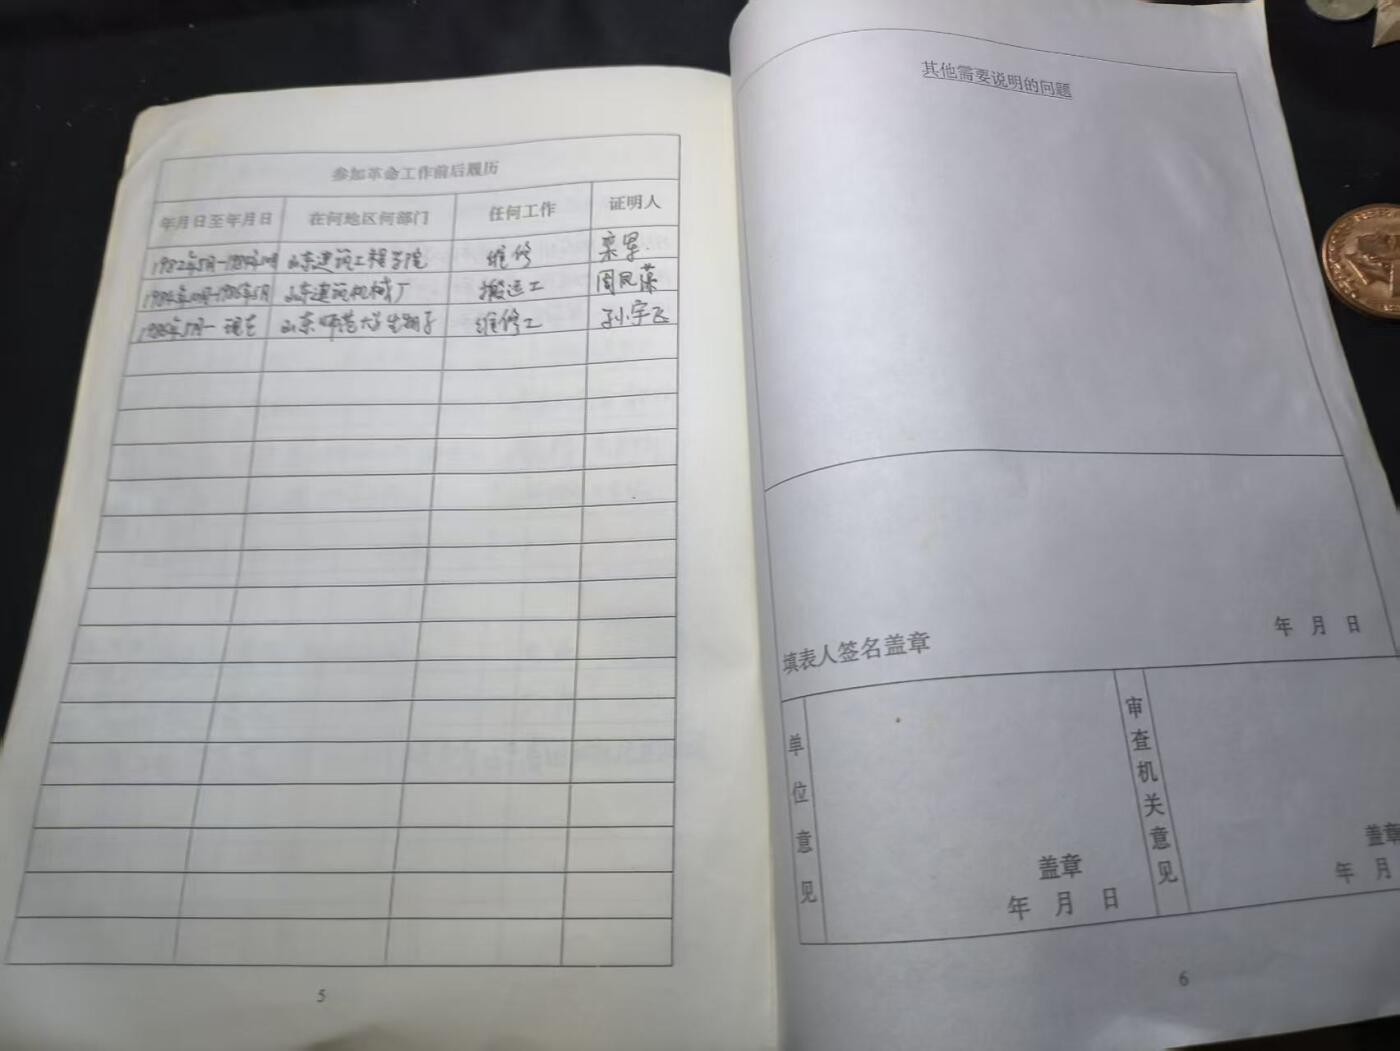 参加革命工作前后履历
年月日至年月日 在何地区何部门 任何工作 证明人
1982年5月-1984年10月 山东建筑工程学院 维修 栾军
1984年10月-1986年5月 山东建筑机械厂 搬运工 周凤藻
1986年5月-现在 山东师范大学生物系 维修工 孙宇飞
5
其他需要说明的问题
年 月 日
填表人签名盖章
单位意见
盖章
年 月 日
审查机关意见
盖章
年 月
6